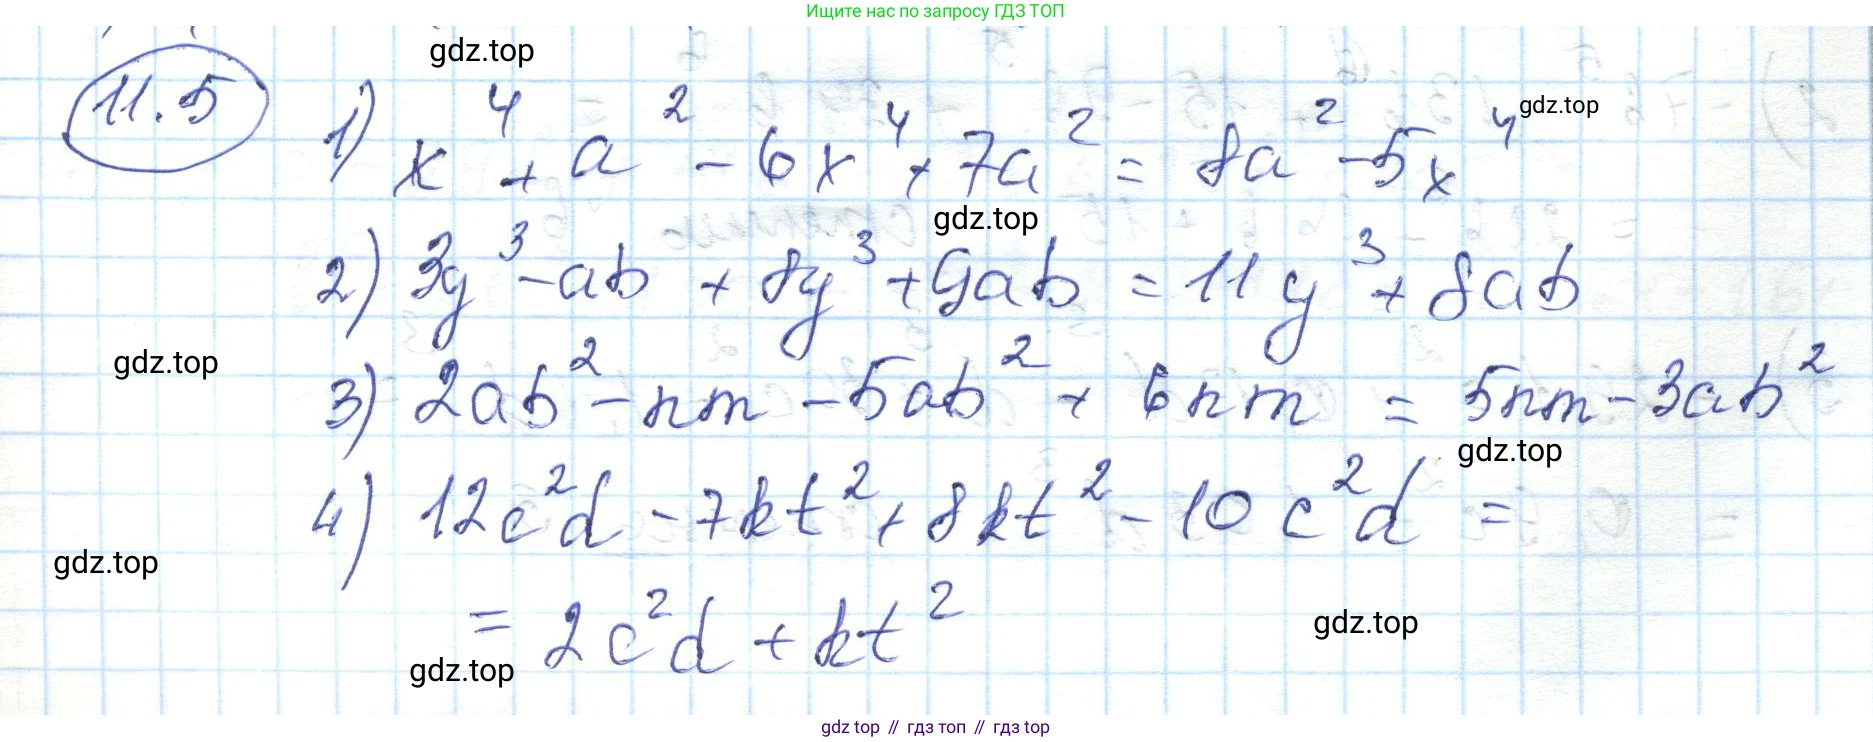 Ищите нас по запросу ГДЗ ТОП
gdz.top
11.5
1) x⁴ + a² - 6x⁴ + 7a² = 8a² - 5x⁴
gdz.top
gdz.top
2) 3y³ - ab + 8y³ + 9ab = 11y³ + 8ab
gdz.top
3) 2ab² - nm - 5ab² + 6nm = 5nm - 3ab²
gdz.top
4) 12c²d - 7kt² + 8kt² - 10c²d =
gdz.top
= 2c²d + kt²
gdz.top
gdz.top
gdz top // гдз топ // гдз top